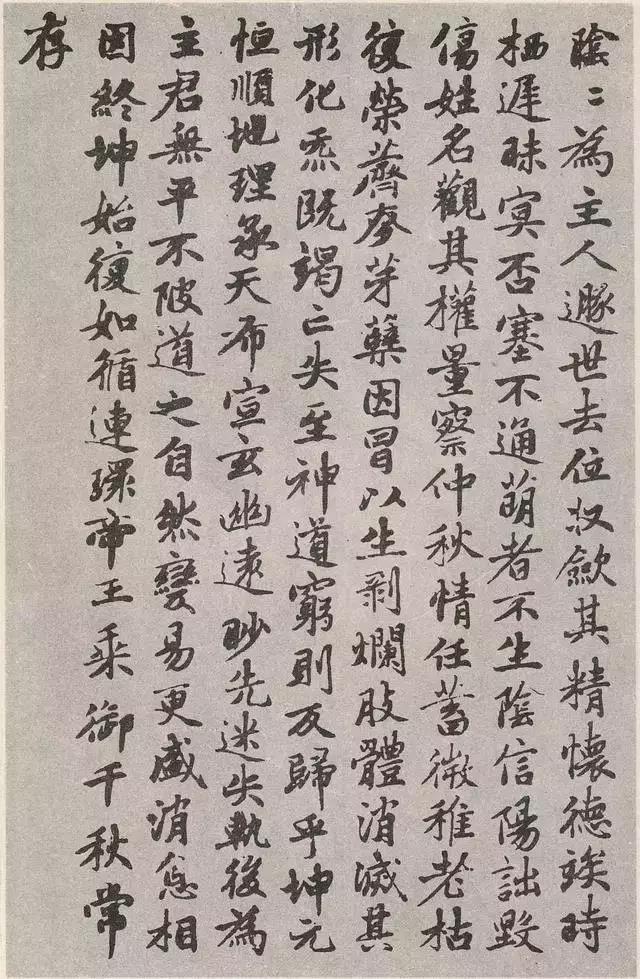 陰〻為主人遯世去位収斂其精懷德竢時
栖遲昧㝠否塞不通萌者不生陰信陽詘毀
傷姓名觀其權量察仲秋情任蓄微稚老枯
復榮薺麥芽蘖因冒以生剥爛肢體消滅其
形化炁既竭亡失至神道窮則反歸乎坤元
恒順地理承天布宣玄幽遠眇先迷失軌後為
主君無平不陂道之自然變易更盛消息相
因終坤始復如循連環帝王乘御千秋常
存